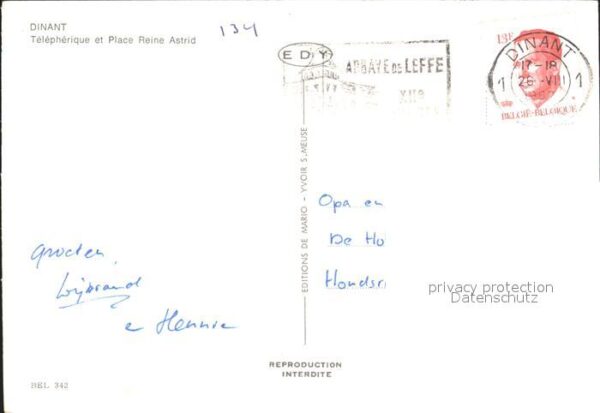 DINANT
Téléphérique et Place Reine Astrid
134
EDY
ABBAYE DE LEFFE
XIIe
13F
DINANT
17-18
26-VIII
1 1
BELGIË-BELGIQUE
EDITIONS DE MARIO - YVOIR S/MEUSE
Opa en
De Ho
Hondsr
Groeten,
Wijbrand
e Hennie
privacy protection
Datenschutz
REPRODUCTION
INTERDITE
BEL 342